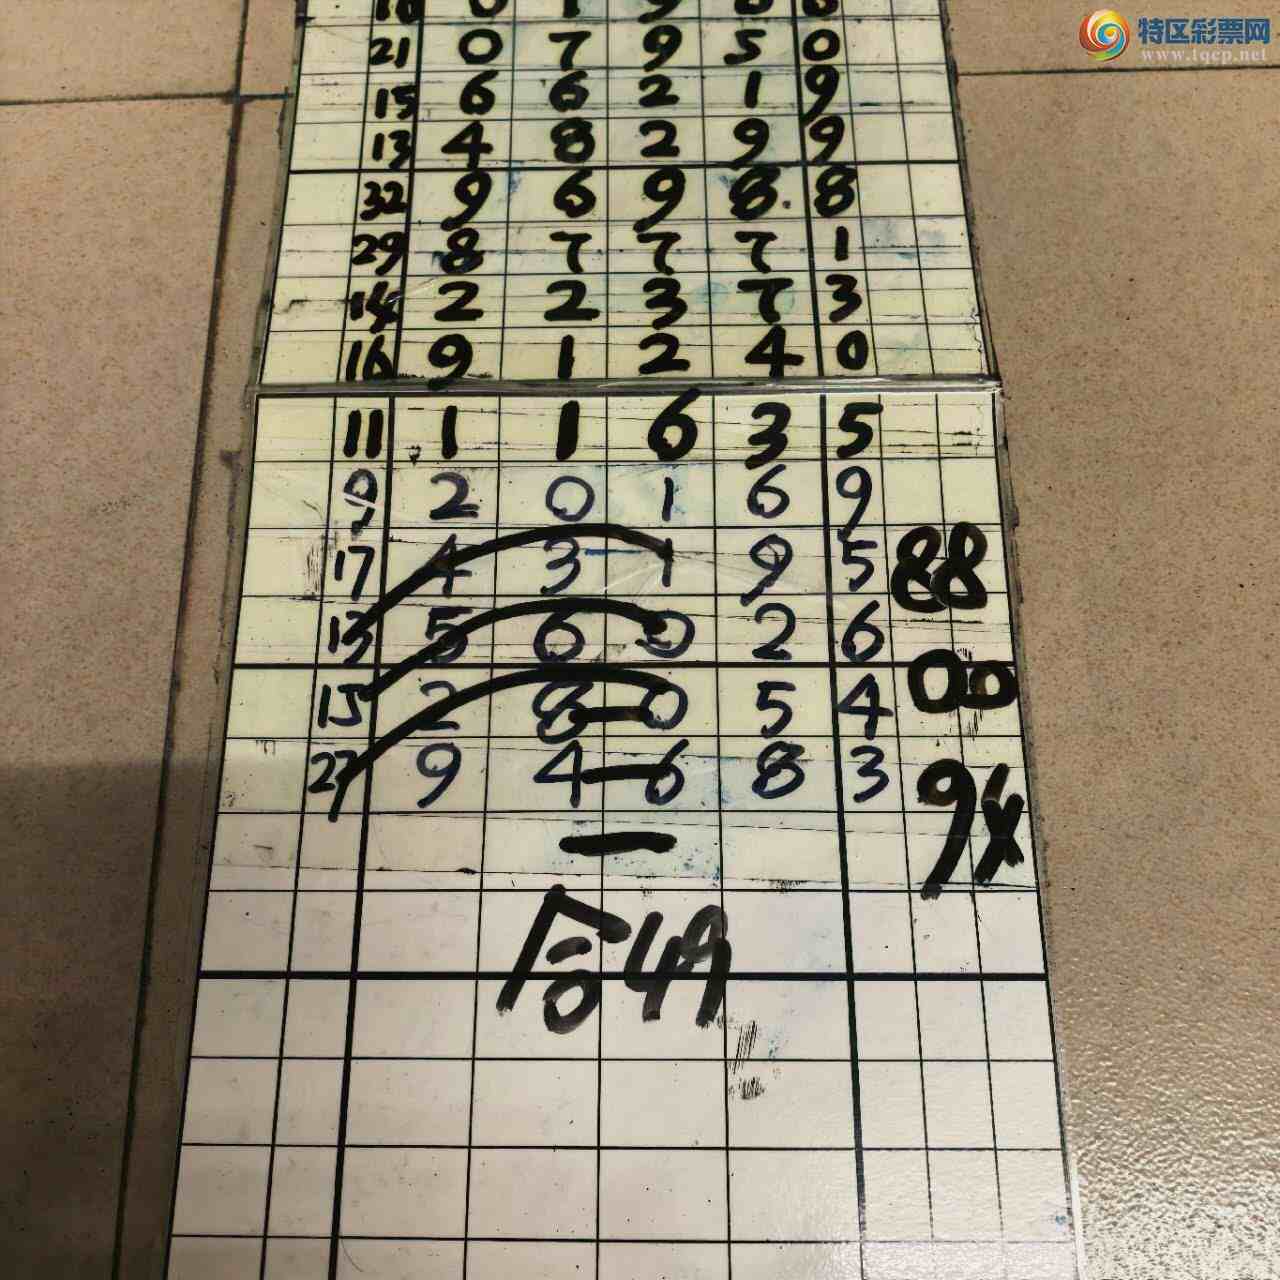 特区彩票网
www.tqcp.net
21 0 7 9 5 0
15 6 6 2 1 9
13 4 8 2 9 9
32 9 6 9 8 8
29 8 7 7 7 1
14 2 2 3 7 3
16 9 1 2 4 0
11 1 1 6 3 5
9 2 0 1 6 9
17 4 3 1 9 5 88
13 5 6 0 2 6
15 2 8 0 5 4 00
27 9 4 6 8 3 9X
合49